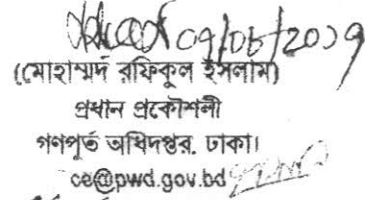 ০৭/০৮/২০১৭
(মোহাম্মদ রফিকুল ইসলাম)
প্রধান প্রকৌশলী
গণপূর্ত অধিদপ্তর, ঢাকা।
ce@pwd.gov.bd